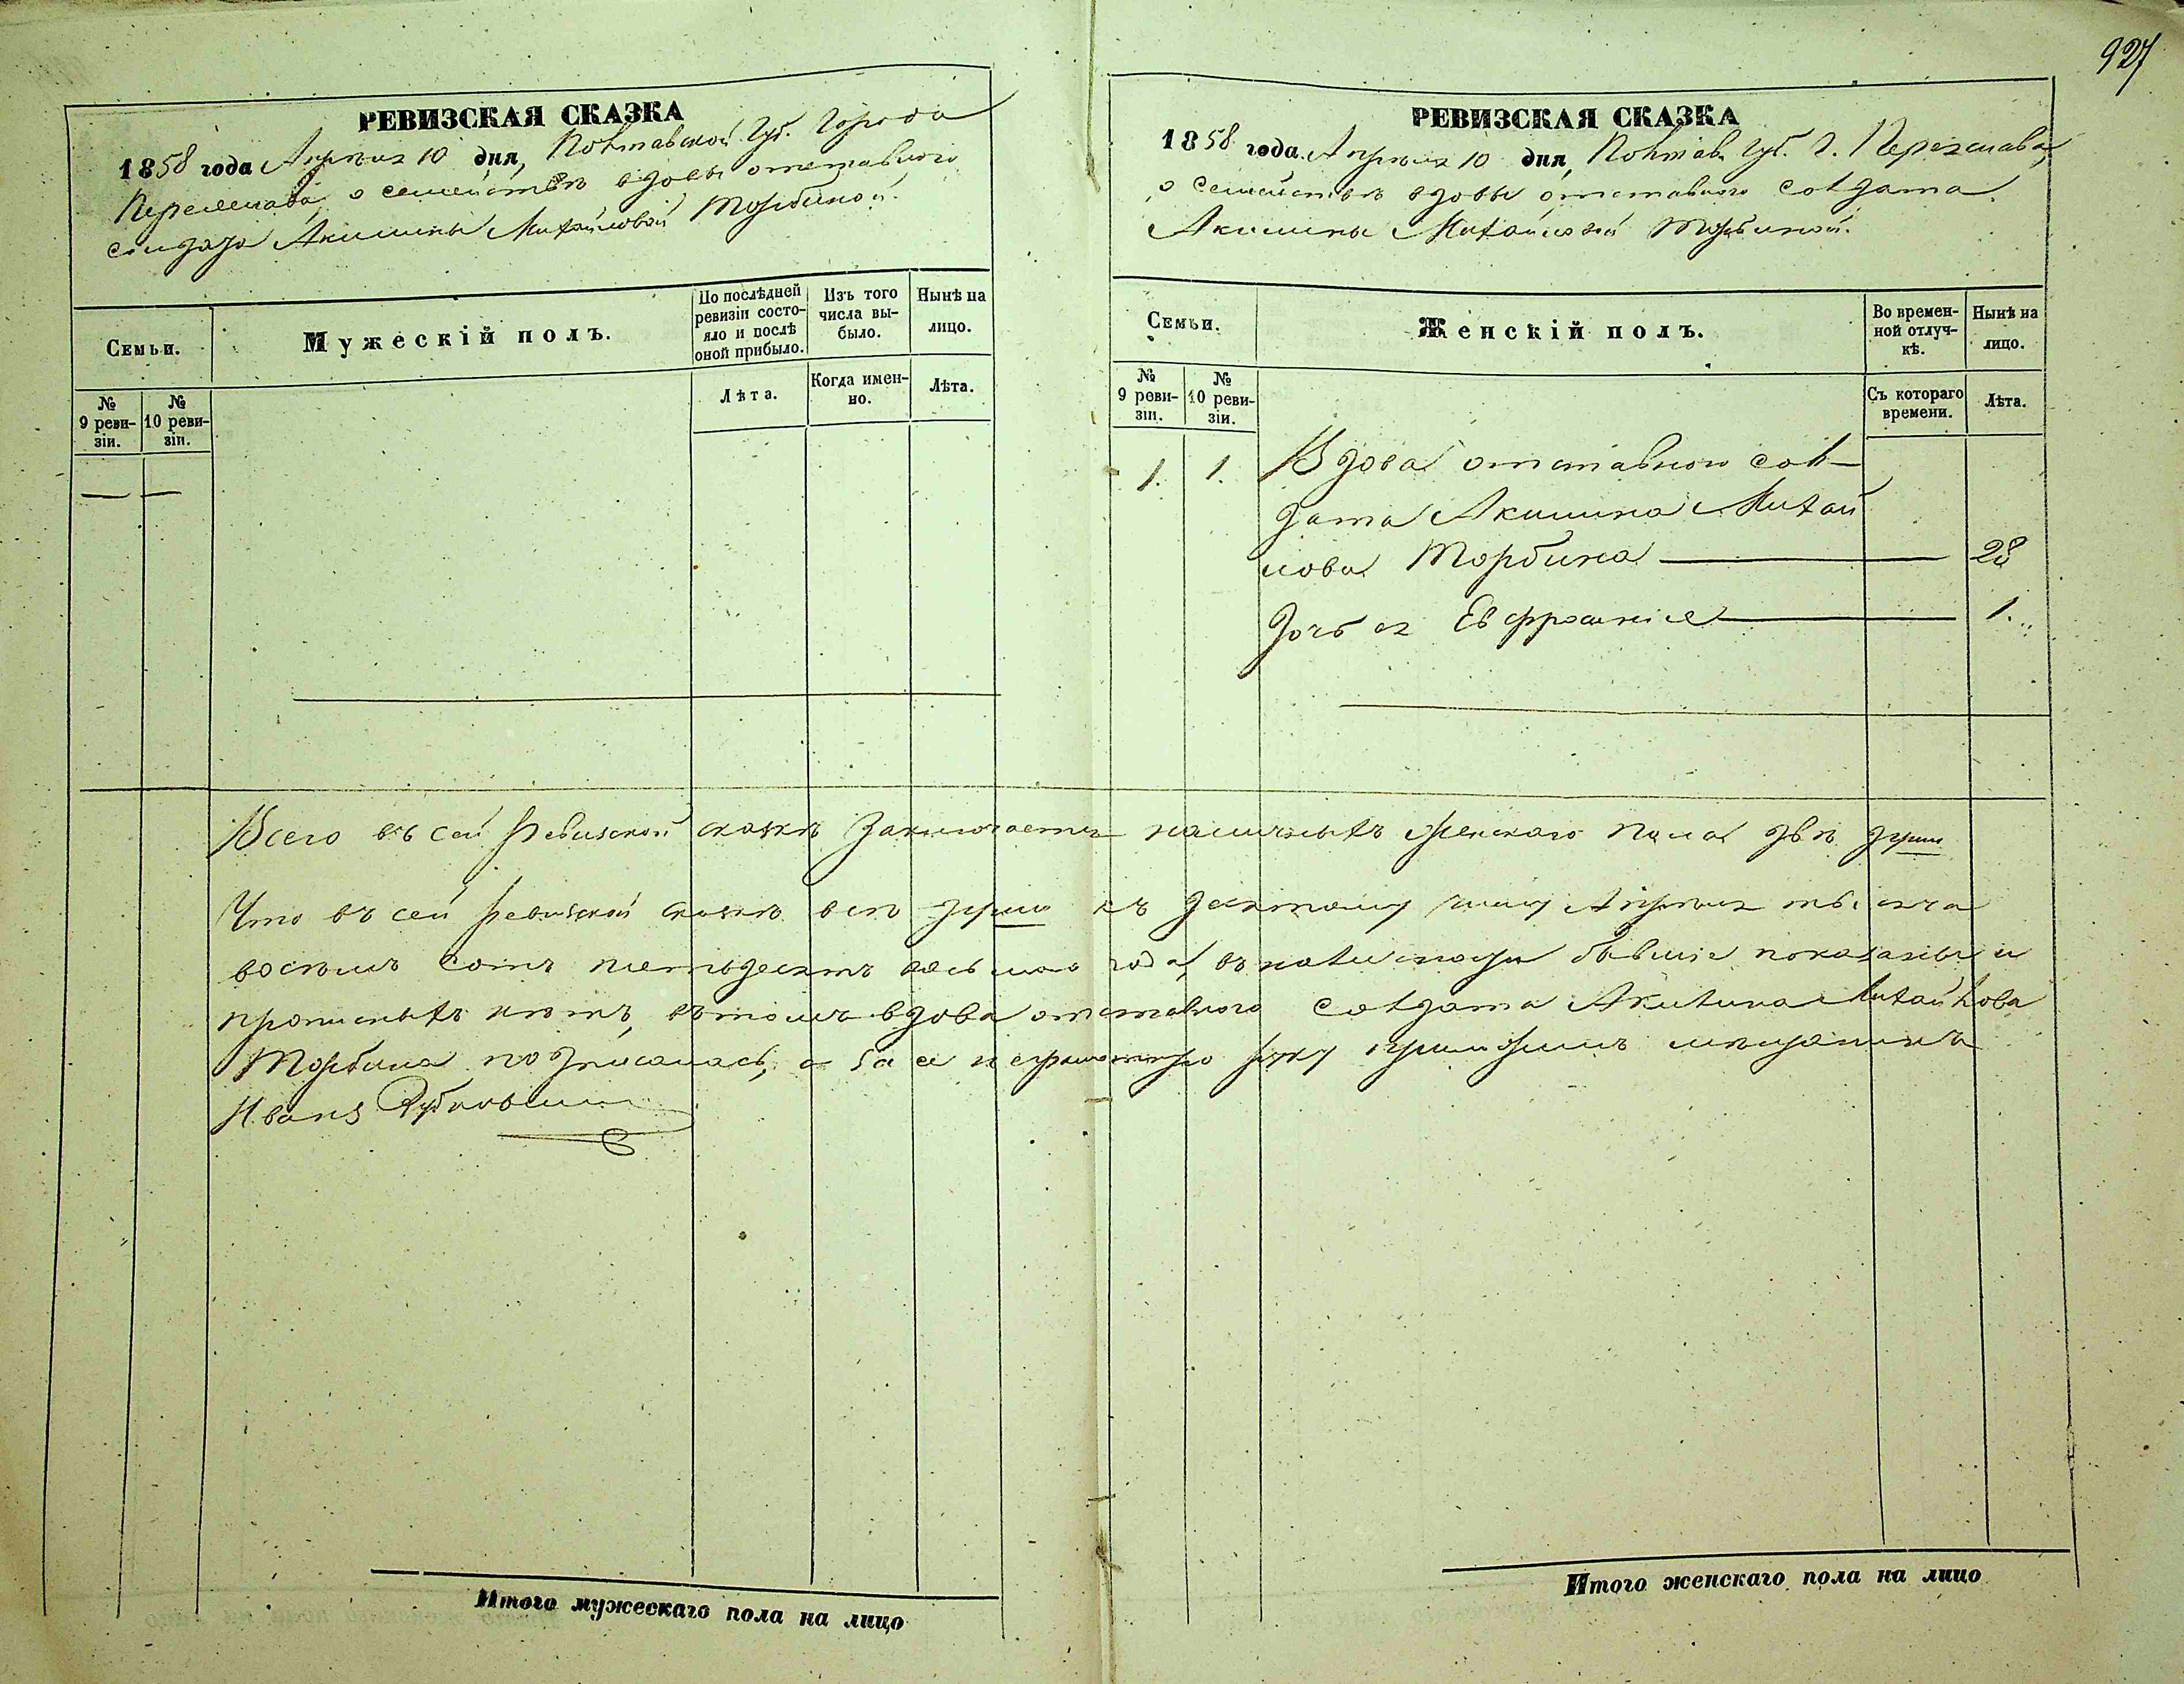 927
РЕВИЗСКАЯ СКАЗКА
1858 года Апрѣля 10 дня, Полтавской Губ. Города
Переяслава, о семействѣ вдовы отставного
солдата Акилины Михайловой Торбиной.
Семьи.
Мужескій полъ.
По послѣдней ревизіи состояло и послѣ оной прибыло.
Изъ того числа выбыло.
Нынѣ на лицо.
№ 9 ревизіи.
№ 10 ревизіи.
Лѣта.
Когда именно.
Лѣта.
— —
РЕВИЗСКАЯ СКАЗКА
1858 года Апрѣля 10 дня, Полтав. Губ. Г. Переяслава,
о семействѣ вдовы отставного солдата
Акилины Михайловой Торбиной.
Семьи.
Женскій полъ.
Во временной отлучкѣ.
Нынѣ на лицо.
№ 9 ревизіи.
№ 10 ревизіи.
Съ котораго времени.
Лѣта.
1. 1. Вдова отставного сол-
дата Акилина Михай
лова Торбина — 28
Дочь ея Евфросинія — 1.
Всего въ сей Ревизской сказкѣ заключается наличныхъ женскаго пола двѣ души
Что въ сей Ревизской сказкѣ всѣ души къ десятому числу Апрѣля тысяча
восемь сотъ пятьдесятъ восьмаго года, въ наличности бывшіе показаны и
прописныхъ нѣтъ, въ томъ вдова отставного солдата Акилина Михайлова
Торбина подписалась, а за ея неграмотную руку приложилъ мѣщанинъ
Иванъ
Итого мужескаго пола на лицо
Итого женскаго пола на лицо